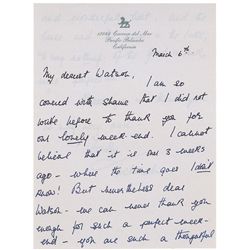 Camino del Mar
Pacific Palisades
California
March 6th
My dearest Watson,
I am so
covered with shame that I did not
write before to thank you for
our lonely week-end. I cannot
believe that it is over 3 weeks
ago - where the time goes I don't
know! But nevertheless dear
Watson - we can never thank you
enough for such a perfect week-
end - you are such a thoughtful